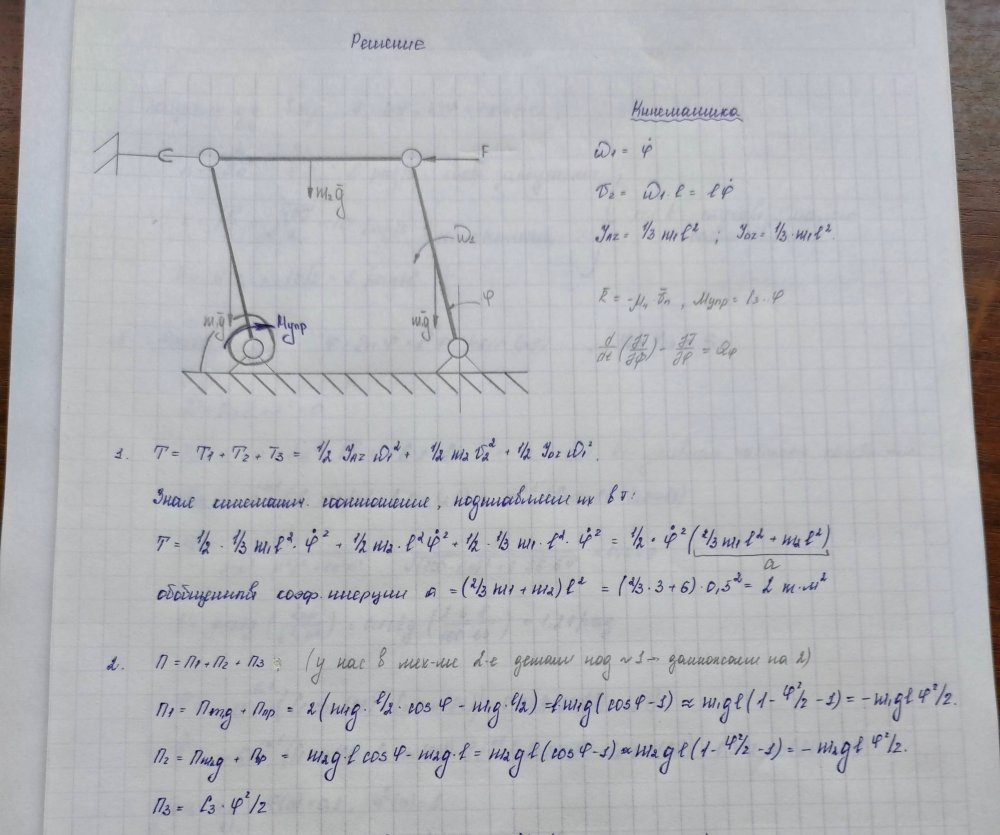 Решение
Кинематика
ω₁ = φ̇
v₂ = ω₁·l = lφ̇
J_Az = 1/3 m₁l² ; J_Oz = 1/3·m₁l².
R̄ = -μ_n·v̄_n , Mупр = C₃·φ
d/dt (∂T/∂φ̇) - ∂T/∂φ = Q_φ
F
m₂ḡ
ω₂
φ
m₁ḡ
Mупр
m₁ḡ
1. T = T₁ + T₂ + T₃ = 1/2 J_Az ω₁² + 1/2 m₂ v₂² + 1/2 J_Oz ω₁².
Зная кинематич. соотношения, подставляем их в T:
T = 1/2 · 1/3 m₁l²·φ̇² + 1/2 m₂·l²φ̇² + 1/2 · 1/3 m₁·l²·φ̇² = 1/2·φ̇² (2/3 m₁l² + m₂l²)
a
обобщенный коэф. инерции a = (2/3 m₁ + m₂) l² = (2/3·3 + 6)·0,5² = 2 кг·м²
2. П = П₁ + П₂ + П₃ (у нас в мех-ме 2-е детали под №1 - домножаем на 2)
П₁ = Пmg + Ппр = 2(m₁g·l/2·cosφ - m₁g·l/2) = lm₁g(cosφ-1) ≈ m₁gl(1-φ²/2-1) = -m₁glφ²/2.
П₂ = Пm₂g + Ппр = m₂g·l cosφ - m₂g·l = m₂gl(cosφ-1) ≈ m₂gl(1-φ²/2-1) = -m₂gl φ²/2.
П₃ = C₃·φ²/2